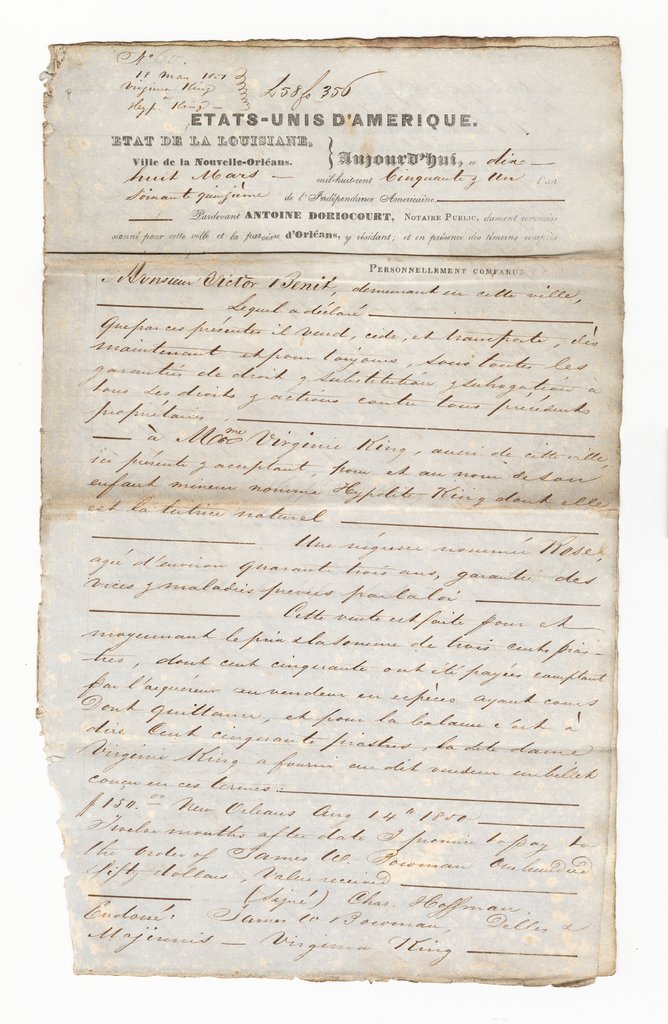 No 60.
18 Mars 1851
Virginia King
Hyp. King
L 58 fo 356
ETATS-UNIS D'AMERIQUE.
ETAT DE LA LOUISIANE,
Ville de la Nouvelle-Orléans. Aujourd'hui, ce dix
huit Mars mil-huit-cent Cinquante & Un l'an
Soixante quinzième de l'Indépendance Américaine
Pardevant ANTOINE DORIOCOURT, NOTAIRE PUBLIC, dument commis-
sionné pour cette ville et la paroisse d'Orléans, y résidant; et en présence des témoins
PERSONNELLEMENT COMPARU:
Monsieur Victor Benit, demeurant en cette ville,
Lequel a déclaré
Que par ces presentes il vend, cède, et transporte, dès
maintenant et pour toujours, sous toutes les
garanties de droit & substitution & subrogation à
tous ses droits & actions contre tous précédents
propriétaires,
à Mme Virginie King, aussi de cette ville,
ici présente & acceptant, pour et au nom de son
enfant mineur nommé Hypolite King dont elle
est la tutrice naturel
Une négresse nommée Rose,
agée d'environ quarante trois ans, garantie des
vices & maladies prévus par la loi
Cette vente est faite pour et
moyennant le prix & la somme de trois cents pias-
tres, dont cent cinquante ont été payées comptant
par l'acquéreur au vendeur en espèces ayant cours
Dont quittance, et pour la balance c'est à
dire Cent cinquante piastres, la dite dame
Virginie King a fourni au dit vendeur un billet
conçu en ces termes:
$150.00 New Orleans Aug 14th 1850
Twelve months after date I promise to pay to
the order of James W. Bowman One hundred
fifty dollars, Value received
(Signé) Chas. Hoffman
Endossé: James W Bowman, Delles &
Majennis — Virginia King